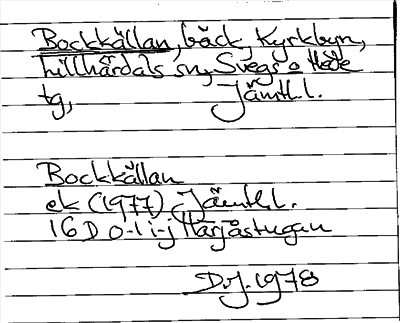 Bockkällan, bäck, Kyrkbyn,
Lillhärdals sn, Svegs o Hede
tg, Jämtl.l.
Bockkällan
ek (1977) Jämtl.l.
16D 0-1 i-j Härjåstugan
D.J. 1978